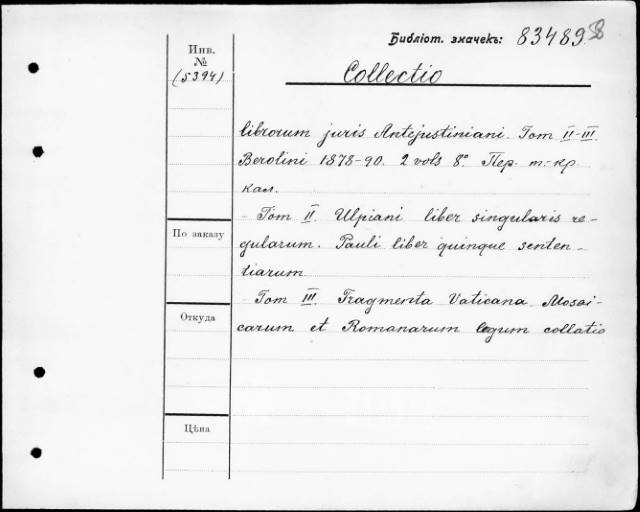 Библіот. значекъ: 83489
Инв.
№
(5394)
Collectio
librorum juris Antejustiniani. Tom II-III.
Berolini 1878-90. 2 vols 8°. Пер. т.-кр
кал.
- Tom II. Ulpiani liber singularis re-
gularum. Pauli liber quinque senten-
tiarum
- Tom III. Fragmenta Vaticana. Mosai-
carum et Romanarum legum collatio
По заказу
Откуда
Цѣна